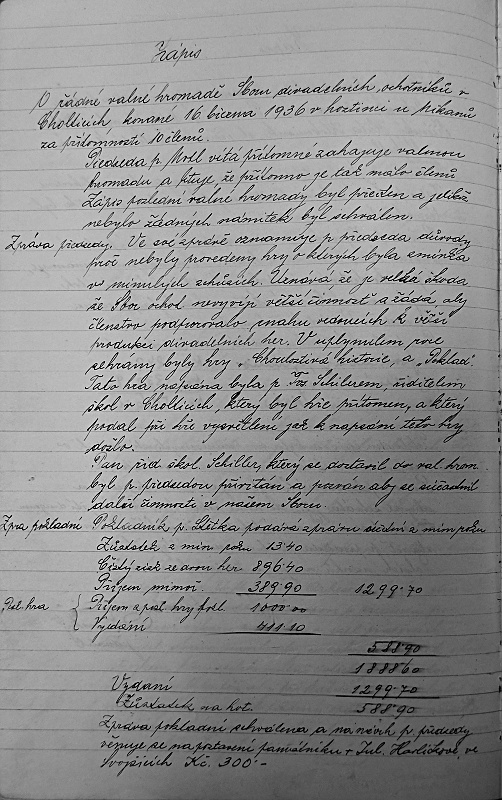 Zápis
O řádné valné hromadě Sboru divadelních ochotníků v
Cholticích, konané 16. března 1936 v hostinci u Mikanů
za přítomnosti 10 členů.
Předseda p. Moll vítá přítomné zahajuje valnou
hromadu a lituje, že přítomno je tak málo členů
Zápis poslední valné hromady byl přečten a jelikož
nebylo žádných námitek byl schválen.
Zpráva předsedy. Ve své zprávě oznamuje p. předseda důvody
proč nebyly provedeny hry o kterých byla zmínka
v minulých schůzích. Uznává že je velká škoda
že Sbor ochot. nevyvíjí větší činnost a žádá, aby
členstvo podporovalo snahu vedoucích k větší
produkci divadelních her. V uplynulém roce
sehrány byly hry „Choulostivá historie“ a „Poklad“.
Tato hra napsána byla p. Frz. Schillrem, řiditelem
škol v Cholticích, který byl hře přítomen, a který
podal při hře vysvětlení jak k napsání této hry
došlo.
Pan řid. škol. Schiller, který se dostavil do val. hrom.
byl p. předsedou přivítán a pozván aby se súčastnil
další činnosti v našem Sboru.
Zpráva pokladní Pokladník p. Lštka podává zprávu z min. roku
Zůstatek z min. roku 13·40
Čistý zisk ze dvou her 896·40
Příjem mimoř. 389·90 1299·70
Posl. hra { Příjem z posl. hry 1000·00
Vydání 411·10
588·90
1888·60
Vydání 1299·70
Zůstatek na hot. 588·90
Zpráva pokladní schválena a na návrh p. předsedy
věnuje se na postavení památníku + Jul. Havlíčkové, ve
Svojšicích Kč. 300·-